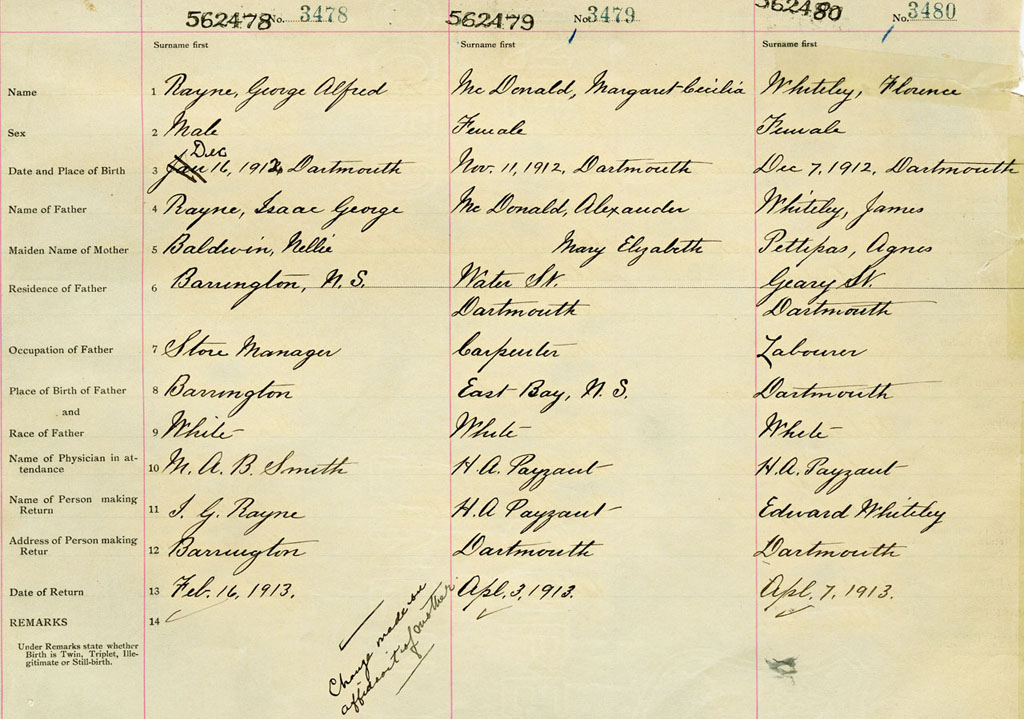 562478 No. 3478 562479 No. 3479 562480 No. 3480
Surname first Surname first Surname first
Name 1 Rayne, George Alfred Mc Donald, Margaret Cecilia Whiteley, Florence
Sex 2 Male Female Female
Dec
Date and Place of Birth 3 Jan 16, 1912, Dartmouth Nov. 11, 1912, Dartmouth Dec 7, 1912, Dartmouth
Name of Father 4 Rayne, Isaac George Mc Donald, Alexander Whiteley, James
Maiden Name of Mother 5 Baldwin, Nellie Mary Elizabeth Pettipas, Agnes
Residence of Father 6 Barrington, N.S. Water St. Geary St.
Dartmouth Dartmouth
Occupation of Father 7 Store Manager Carpenter Labourer
Place of Birth of Father 8 Barrington East Bay, N.S. Dartmouth
and
Race of Father 9 White White White
Name of Physician in at-
tendance 10 M. A. B. Smith H.A. Payzant H.A. Payzant
Name of Person making
Return 11 I. G. Rayne H.A Payzant Edward Whiteley
Address of Person making
Retur 12 Barrington Dartmouth Dartmouth
Date of Return 13 Feb. 16, 1913. Apl. 3, 1913. Apl. 7, 1913.
REMARKS 14
Under Remarks state whether
Birth is Twin, Triplet, Ille-
gitimate or Still-birth.
Change made on
affidavit of mother